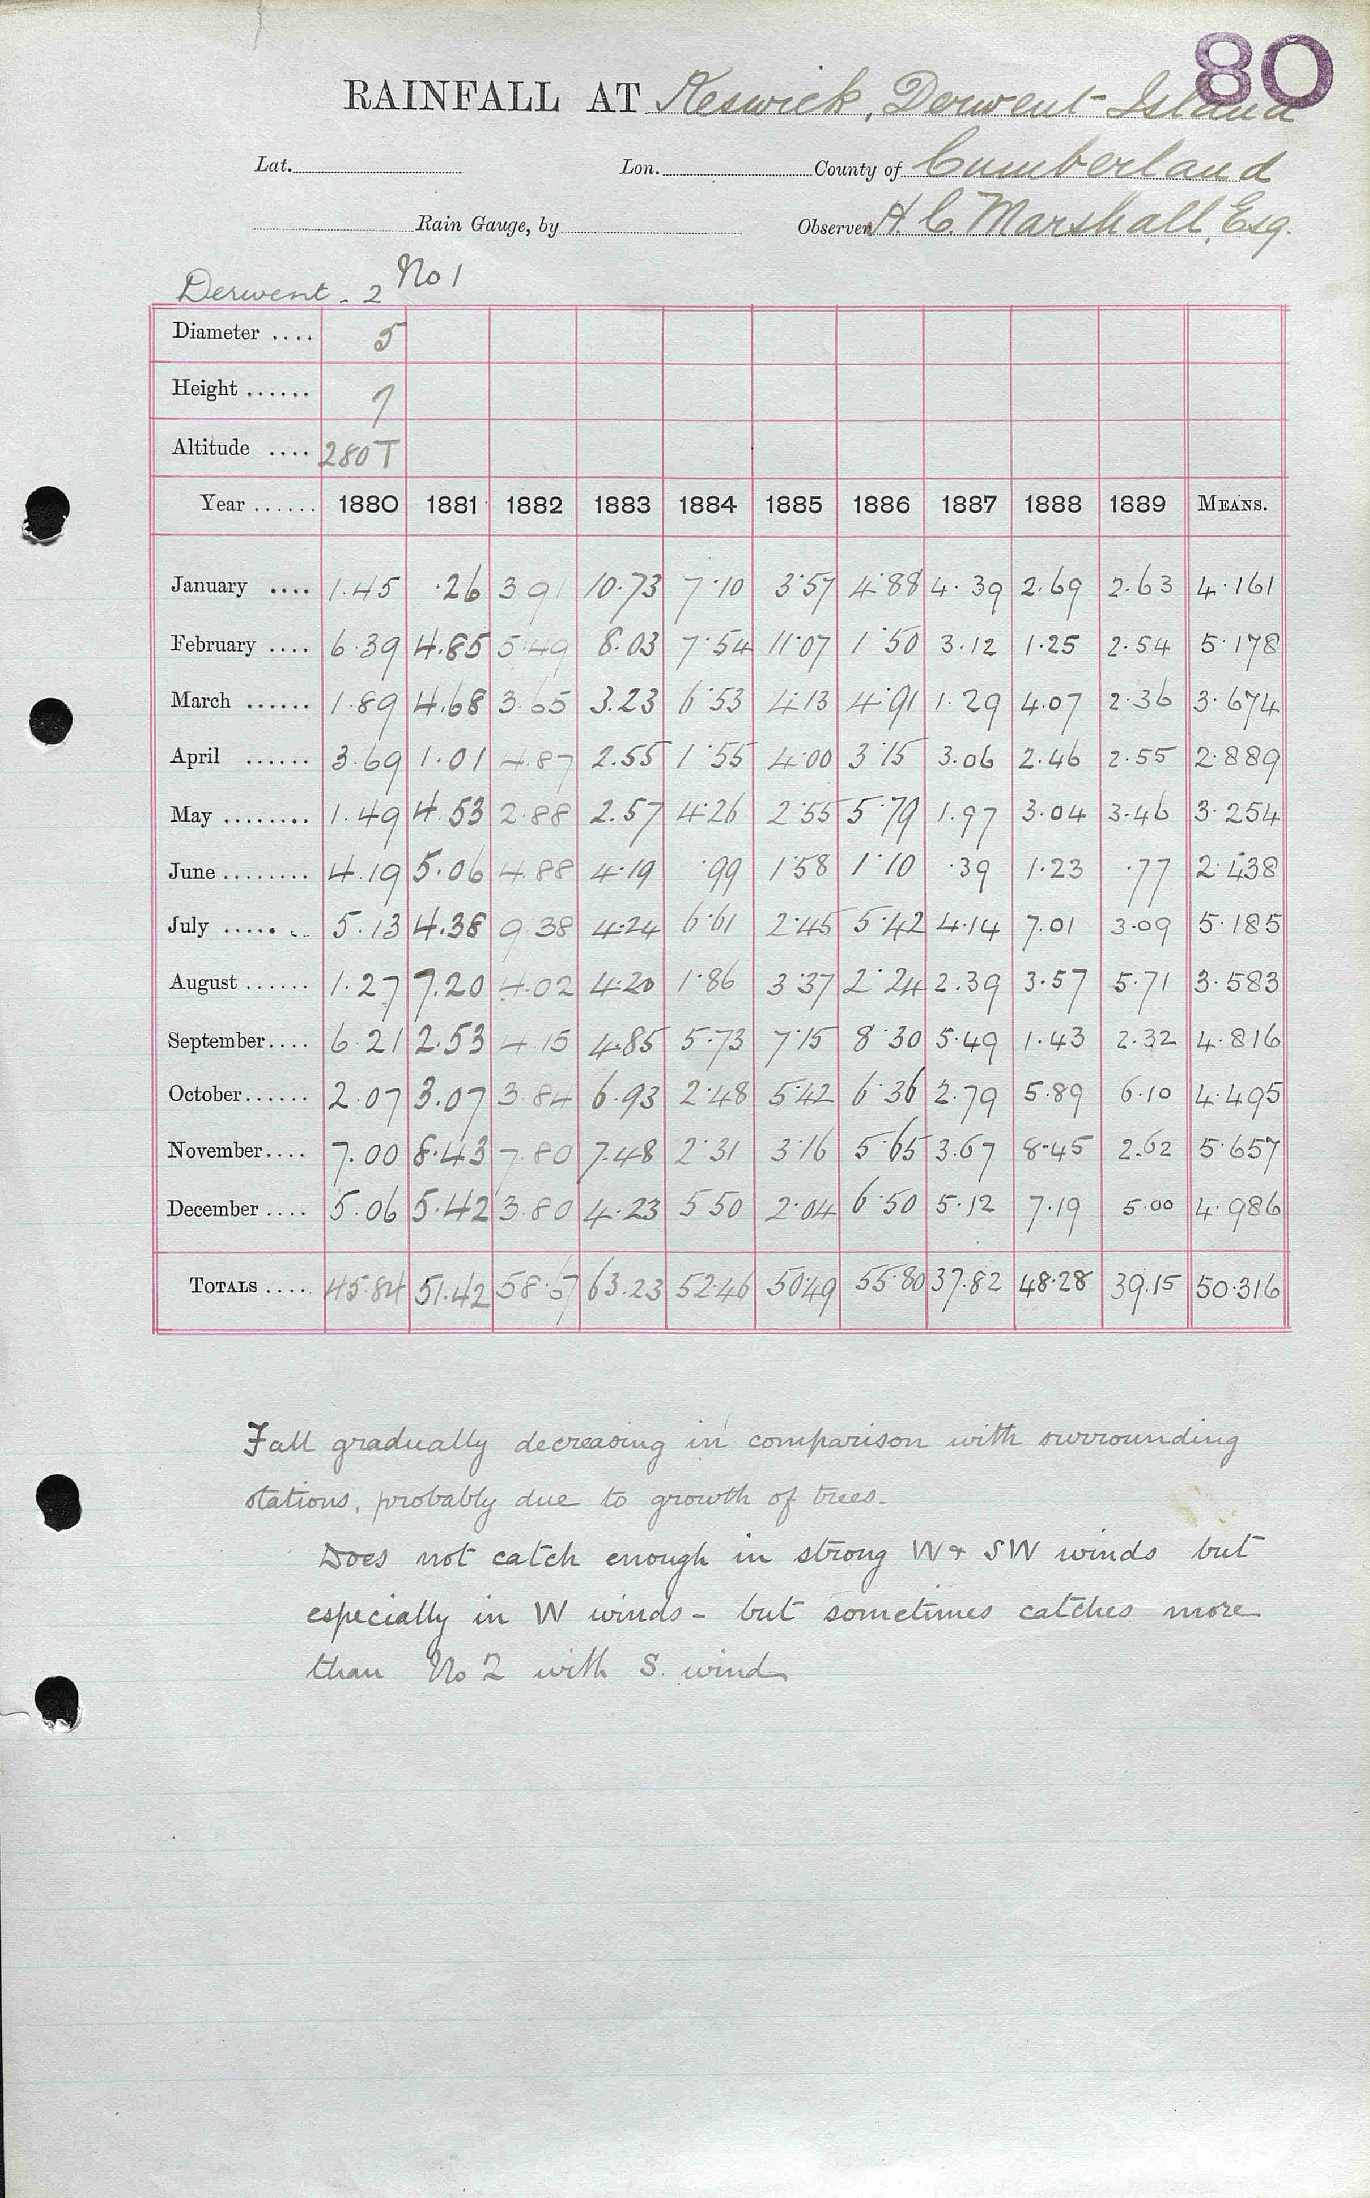 80
RAINFALL AT Keswick, Derwent Island
Lat. Lon. County of Cumberland
Rain Gauge, by Observer H. C. Marshall, Esq.
Derwent - 2 No 1
Diameter .... 5
Height ...... 7
Altitude .... 280 T
Year ...... 1880 1881 1882 1883 1884 1885 1886 1887 1888 1889 MEANS.
January .... 1.45 .26 3.91 10.73 7.10 3.57 4.88 4.39 2.69 2.63 4.161
February .... 6.39 4.85 5.49 8.03 7.54 11.07 1.50 3.12 1.25 2.54 5.178
March ...... 1.89 4.68 3.65 3.23 6.53 4.13 4.91 1.29 4.07 2.36 3.674
April ...... 3.69 1.01 4.87 2.55 1.55 4.00 3.15 3.06 2.46 2.55 2.889
May ........ 1.49 4.53 2.88 2.57 4.26 2.55 5.79 1.97 3.04 3.46 3.254
June ........ 4.19 5.06 4.88 4.19 .99 1.58 1.10 .39 1.23 .77 2.438
July ....... 5.13 4.38 9.38 4.24 6.61 2.45 5.42 4.14 7.01 3.09 5.185
August ...... 1.27 7.20 4.02 4.20 1.86 3.37 2.24 2.39 3.57 5.71 3.583
September.... 6.21 2.53 4.15 4.85 5.73 7.15 8.30 5.49 1.43 2.32 4.816
October...... 2.07 3.07 3.84 6.93 2.48 5.42 6.36 2.79 5.89 6.10 4.495
November.... 7.00 8.43 7.80 7.48 2.31 3.16 5.65 3.67 8.45 2.62 5.657
December .... 5.06 5.42 3.80 4.23 5.50 2.04 6.50 5.12 7.19 5.00 4.986
TOTALS .... 45.84 51.42 58.67 63.23 52.46 50.49 55.80 37.82 48.28 39.15 50.316
Fall gradually decreasing in comparison with surrounding
stations, probably due to growth of trees.
Does not catch enough in strong W & SW winds but
especially in W winds - but sometimes catches more
than No 2 with S. wind